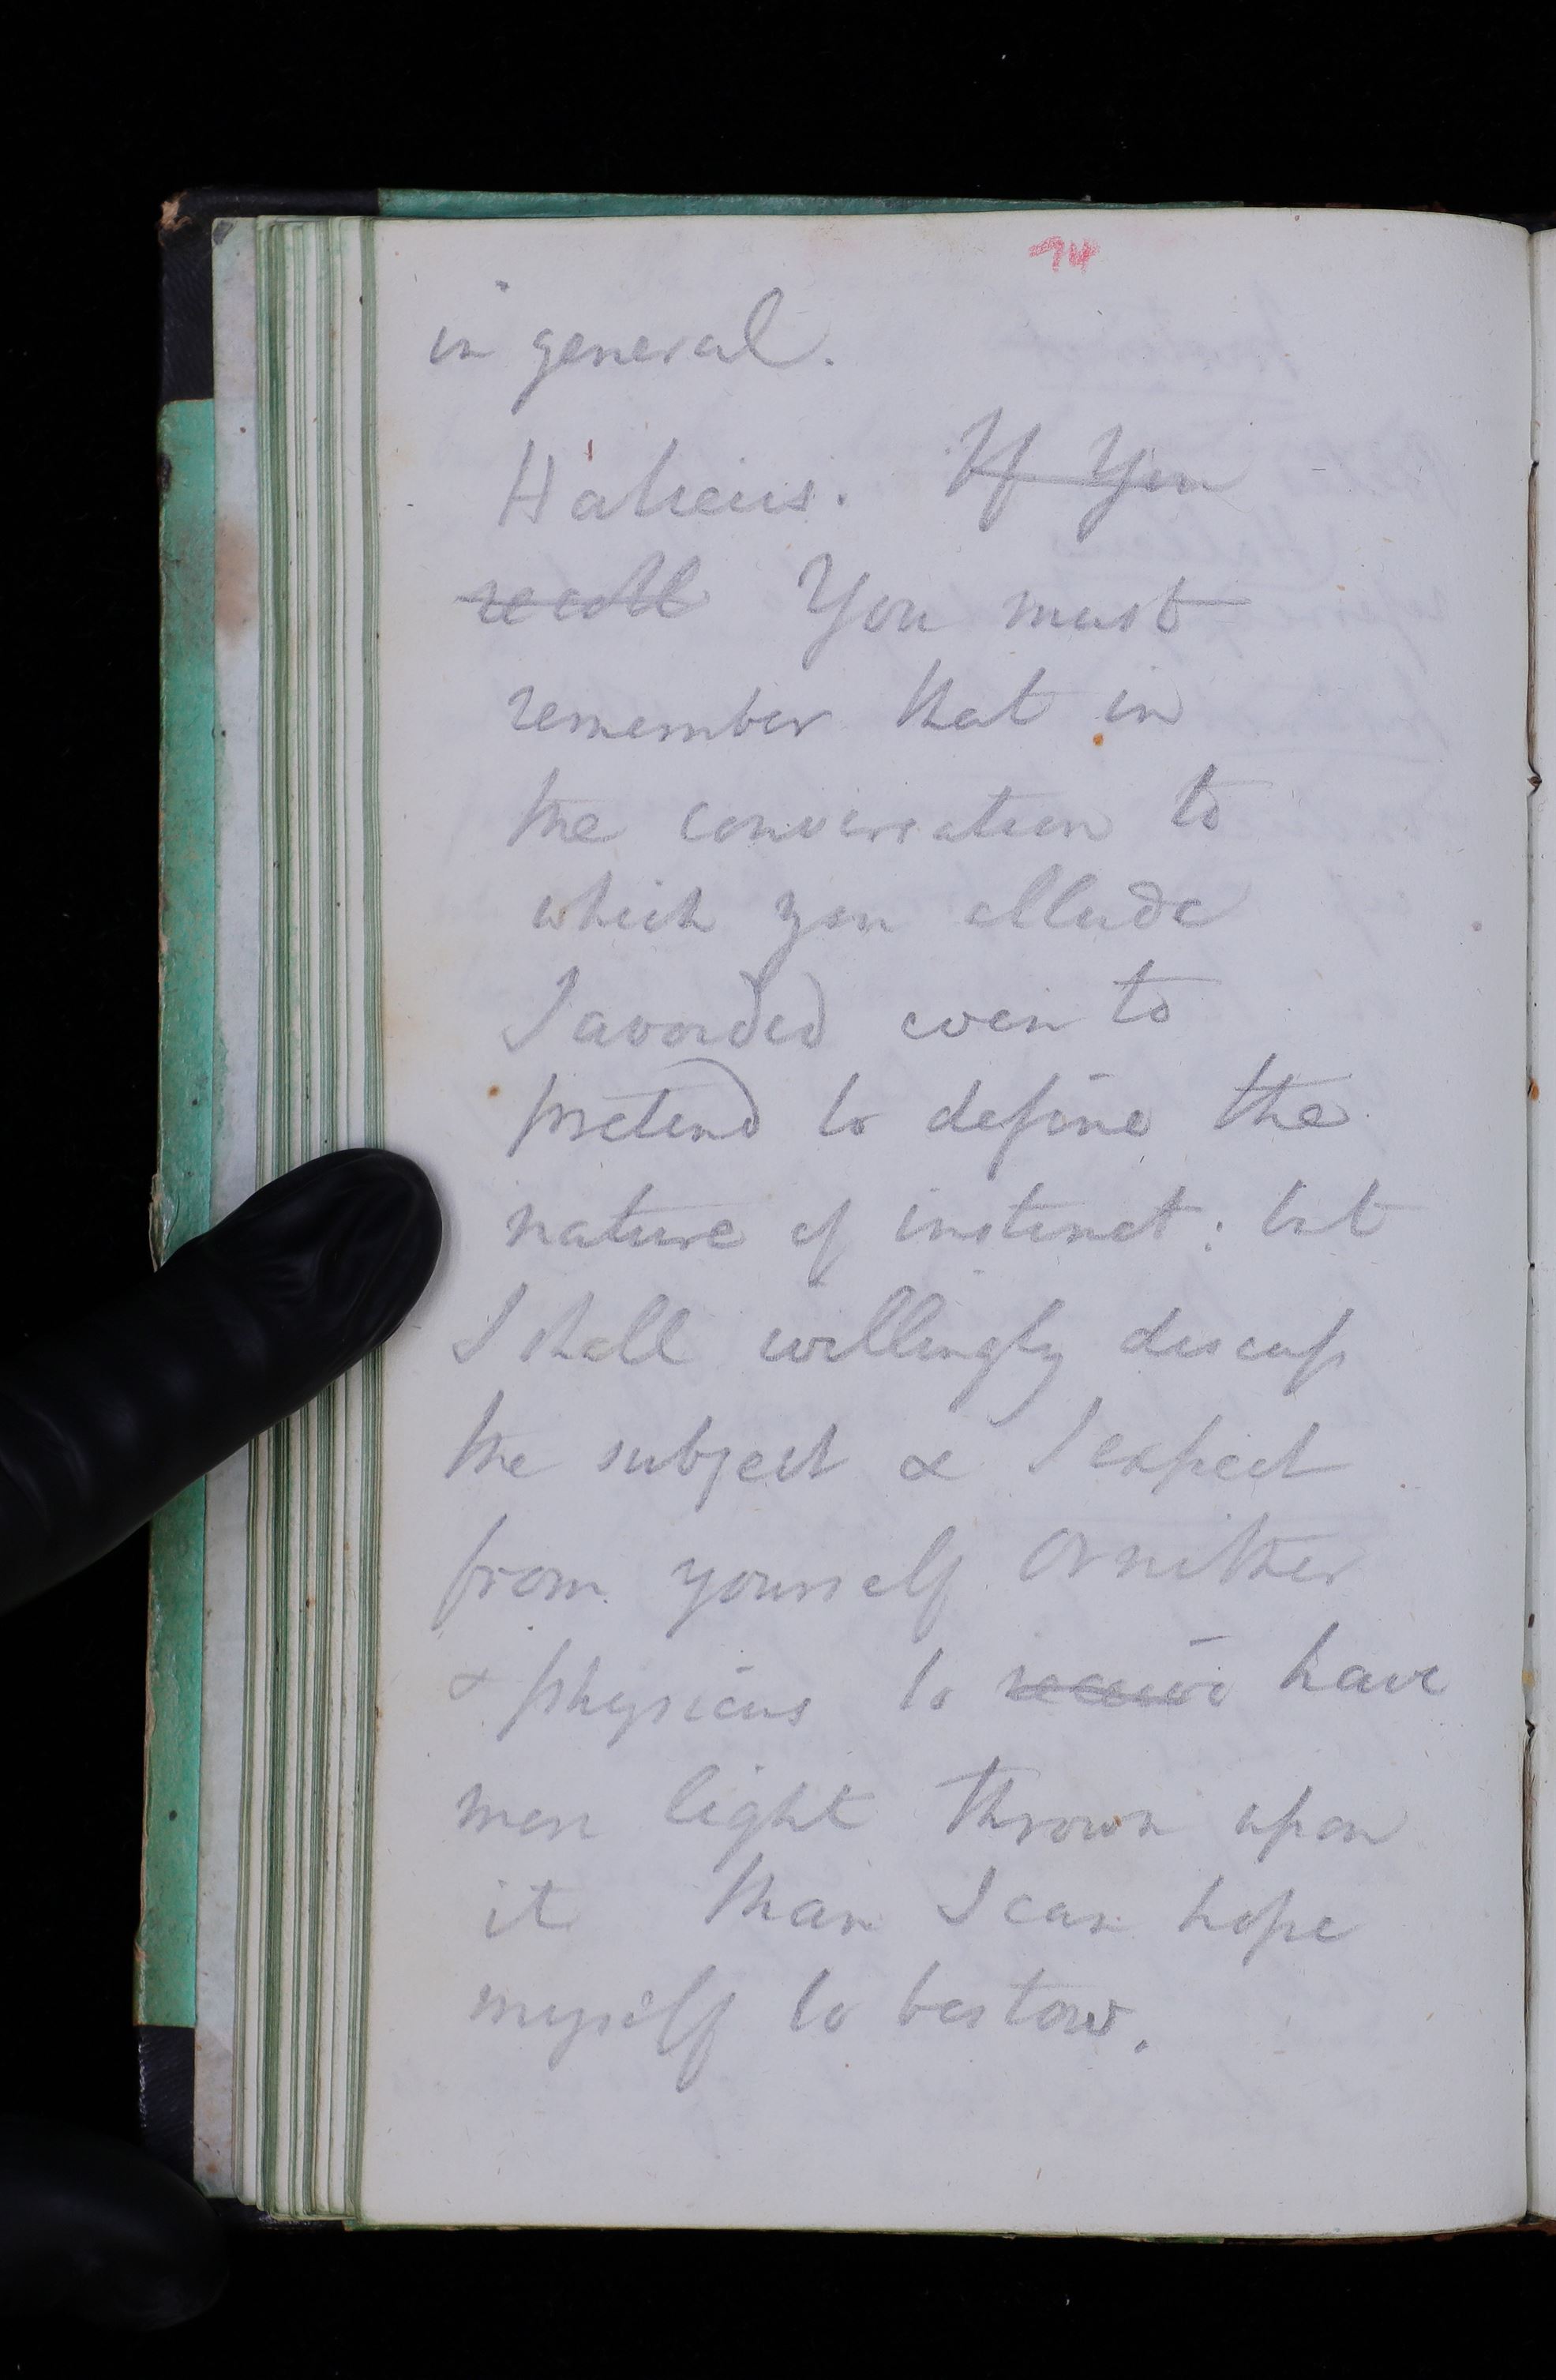 74
in general.
Halieus. If You
recoll You must
remember that in
the conversation to
which you allude
I avoided even to
pretend to define the
nature of instinct: but
I shall willingly discuss
the subject & I expect
from yourself Ornither
& physicus to receive have
more light thrown upon
it than I can hope
myself to bestow.